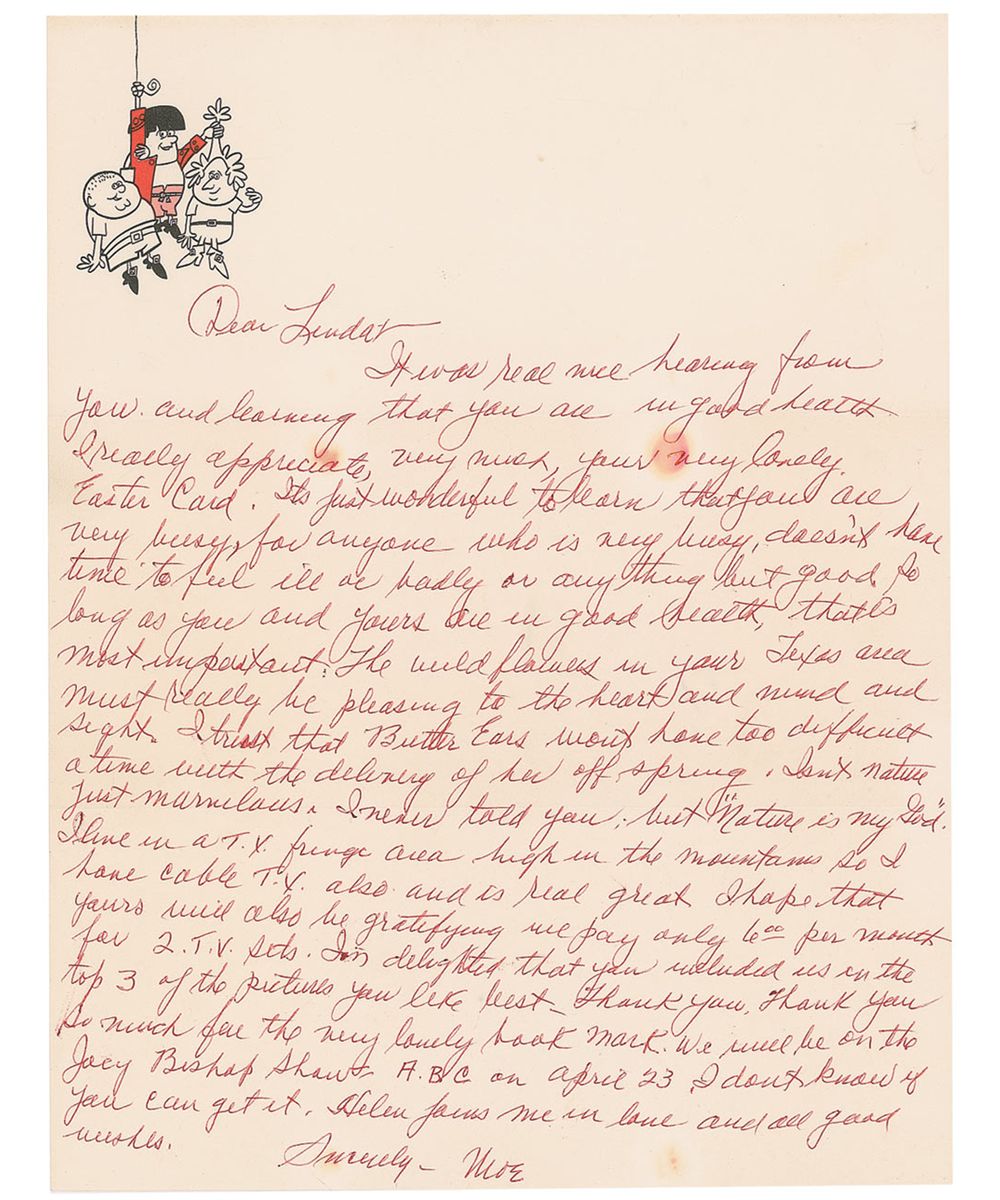 Dear Linda:-
It was real nice hearing from
you. and learning that you are in good health
I really appreciate, very much, your very lovely.
Easter Card. Its just wonderful to learn that you are
very busy, for anyone who is very busy, doesn't have
time to feel ill or badly or any thing but good. So
long as you and yours are in good health, that's
most important. The wild flowers in your Texas area
must really be pleasing to the heart and mind and
sight. I trust that Butter Ears won't have too difficult
a time with the delivery of her off spring. Isn't nature
just marvelous. I never told you, but "Nature is my God".
I live in a T.V. fringe area high in the mountains so I
have cable T.V. also and is real great I hope that
yours will also be gratifying we pay only 6 00 per month
for 2. T.V. sets. I'm delighted that you included us in the
top 3 of the pictures you like best- Thank you, Thank you
so much for the very lovely book mark. We will be on the
Joey Bishop Show- A.B.C. on april 23 I dont know if
you can get it. Helen joins me in love and all good
wishes.
Sincerely- Moe